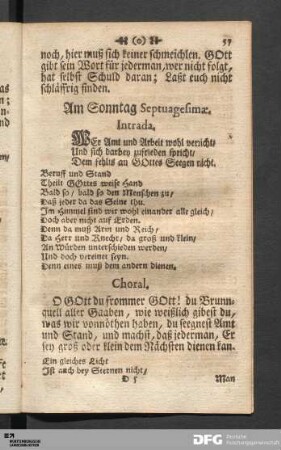 (0) 57
noch, hier muß sich keiner schmeichlen. GOtt
gibt sein Wort für jederman, wer nicht folgt,
hat selbst Schuld daran; Laßt euch nicht
schläffrig finden.
Am Sonntag Septuagesimæ.
Intrada.
WEr Amt und Arbeit wohl verricht,
Und sich darbey zufrieden spricht,
Dem fehlts an GOttes Seegen nicht.
Beruff und Stand
Theilt GOttes weise Hand
Bald so, bald so den Menschen zu,
Daß jeder da das Seine thu.
Im Himmel sind wir wohl einander alle gleich,
Doch aber nicht auf Erden.
Denn da muß Arm und Reich,
Da Herr und Knecht, da groß und klein,
An Würden unterschieden werden,
Und doch vereinet seyn.
Denn eines muß dem andern dienen.
Choral.
O GOtt du frommer GOtt! du Brunn-
quell aller Gaaben, wie weißlich gibest du,
was wir vonnöthen haben, du seegnest Amt
und Stand, und machst, daß jederman, Er
sey groß oder klein dem Nächsten dienen kan.
Ein gleiches Licht
Ist auch bey Sternen nicht,
D 5 Man
DFG